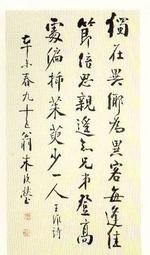 獨在異鄉為異客每逢佳
節倍思親遙知兄弟登高
處徧插茱萸少一人王維詩
春九十翁朱